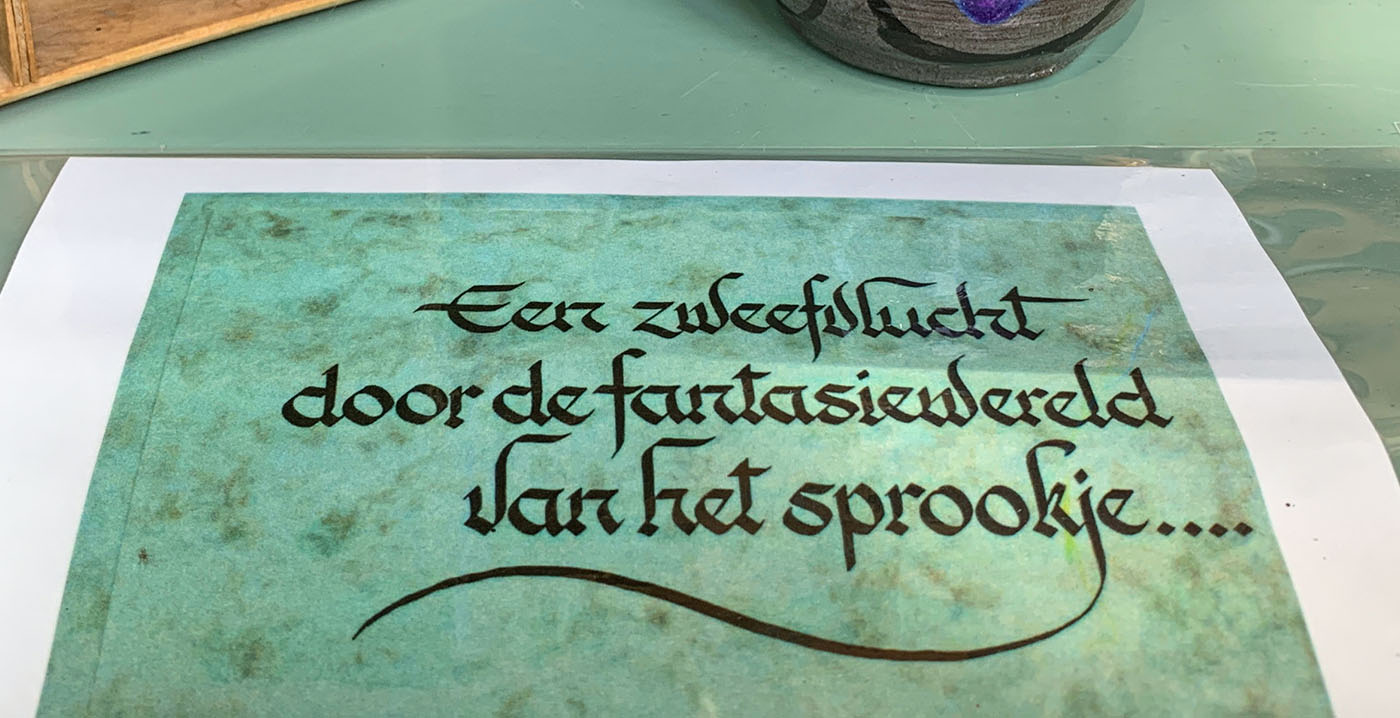 Een zweefvlucht
door de fantasiewereld
van het sprookje....